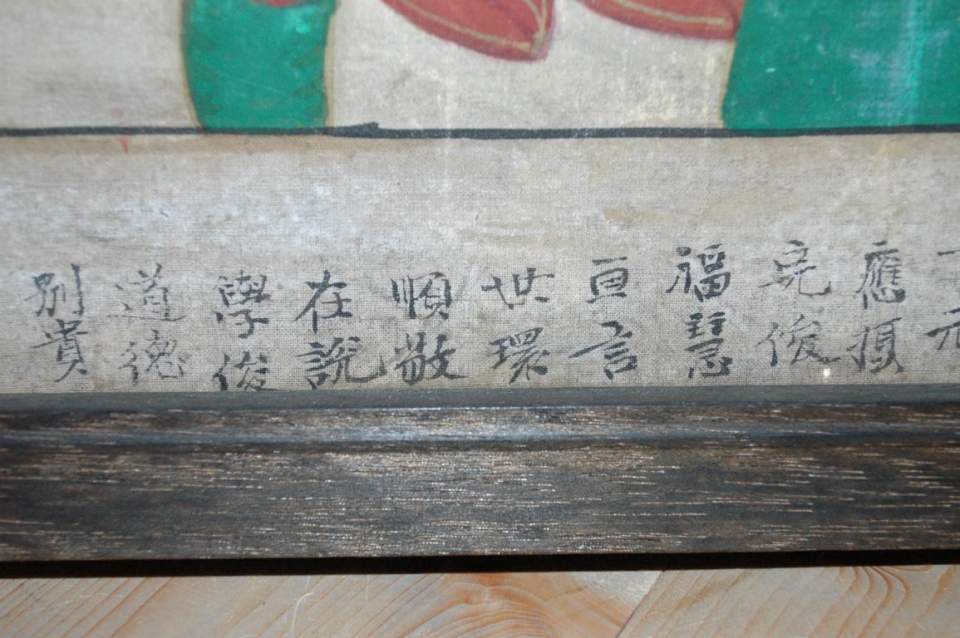 應須
完俊
福慧
亘言
世環
順敬
在說
學俊
道德
別賞